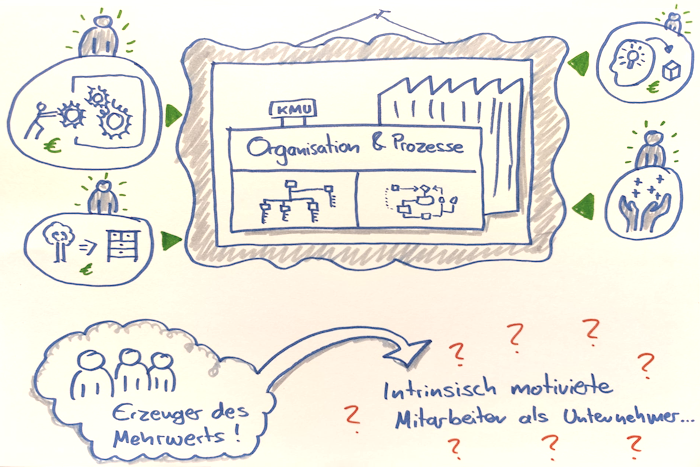 KMU
Organisation & Prozesse
€
€
€
Erzeuger des
Mehrwerts!
Intrinsisch motivierte
Mitarbeiter als Unternehmer...
? ? ? ? ? ? ? ?